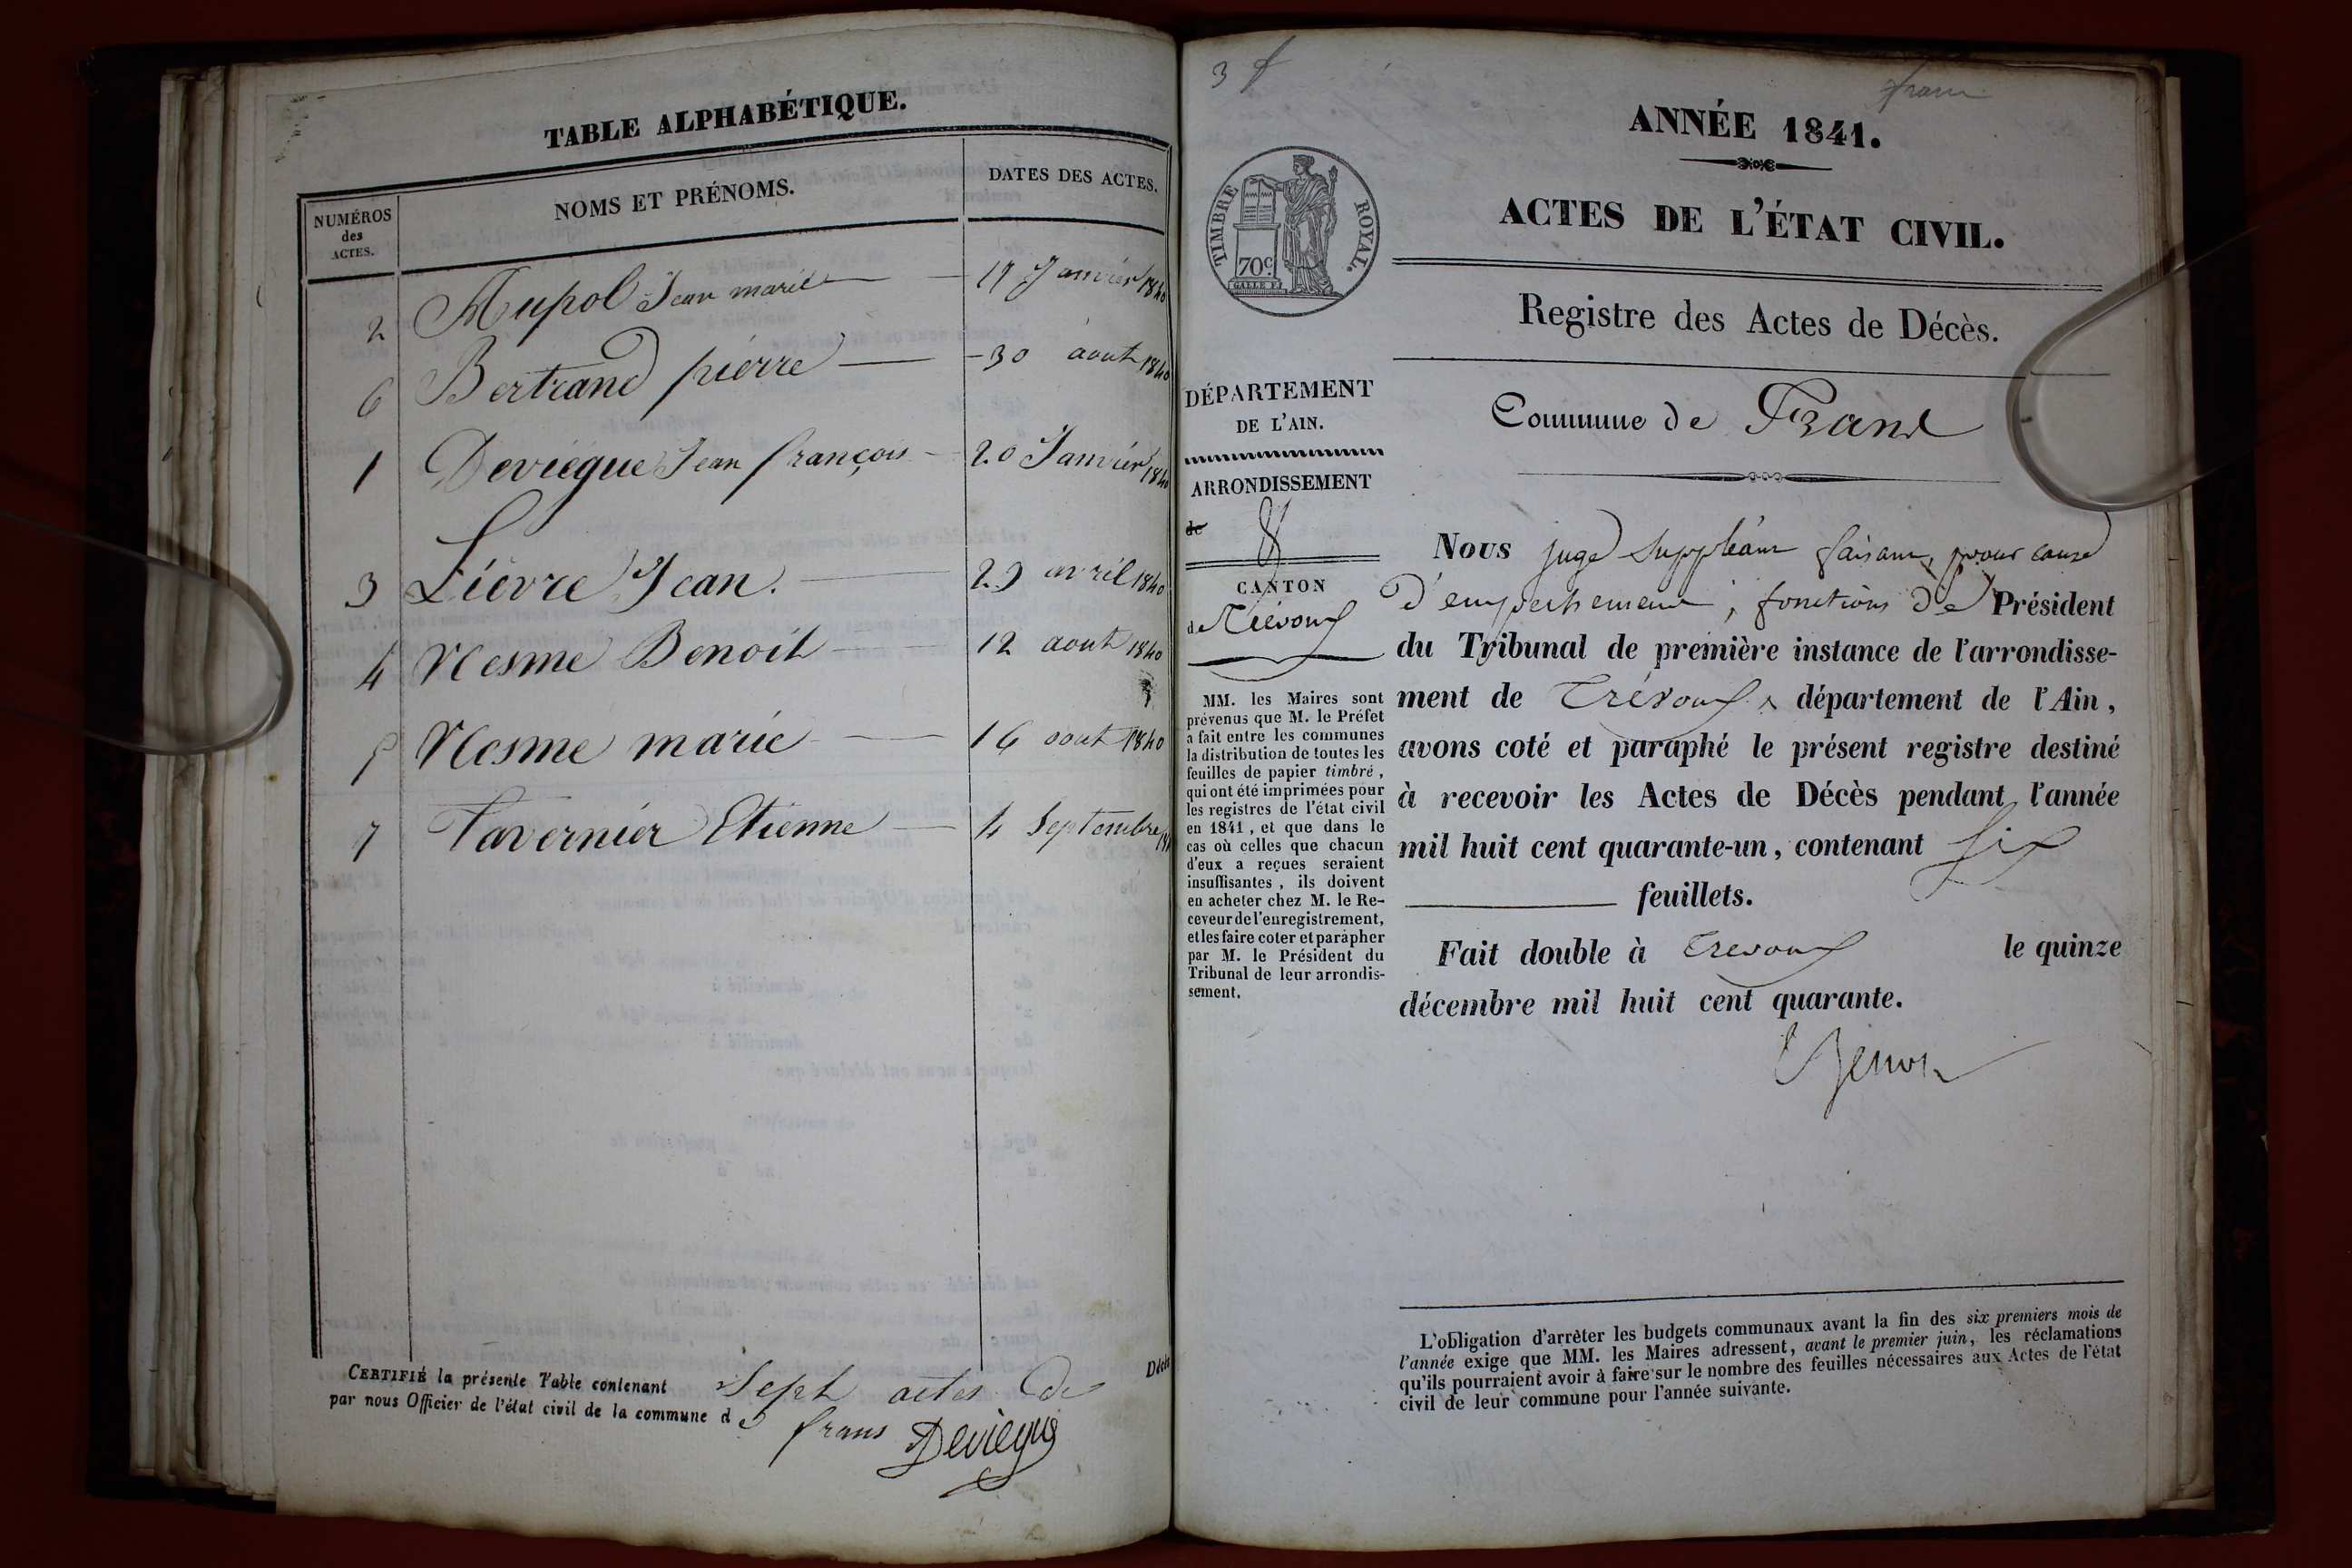 TABLE ALPHABÉTIQUE.
NUMÉROS
des
ACTES.
NOMS ET PRÉNOMS.
DATES DES ACTES.
2 Mupol Jean marie 1840
6 Bertrand pierre 30 aout 1840
1 Deviégue Jean françois 20 Janvier 1840
3 Liévre Jean. 29 avril 1840
4 Nesme Benoit 12 aout 1840
5 Nesme marie 16 aout 1840
7 Tavernier Etienne 4 Septembre
CERTIFIÉ la présente Table contenant Sept actes de Décès
par nous Officier de l'état civil de la commune de frans
Deviegue
3 f
frans
ANNÉE 1841.
ACTES DE L'ÉTAT CIVIL.
TIMBRE ROYAL.
70 c.
Registre des Actes de Décès.
Commune de Frans
DÉPARTEMENT
DE L'AIN.
ARRONDISSEMENT
de
&
CANTON
de Trévoux
MM. les Maires sont
prévenus que M. le Préfet
a fait entre les communes
la distribution de toutes les
feuilles de papier timbré,
qui ont été imprimées pour
les registres de l'état civil
en 1841, et que dans le
cas où celles que chacun
d'eux a reçues seraient
insuffisantes, ils doivent
en acheter chez M. le Re-
ceveur de l'enregistrement,
et les faire coter et parapher
par M. le Président du
Tribunal de leur arrondis-
sement.
Nous juge Suppléant faisant, pour cause
d'empêchement, fonctions de Président
du Tribunal de première instance de l'arrondisse-
ment de Trévoux, département de l'Ain,
avons coté et paraphé le présent registre destiné
à recevoir les Actes de Décès pendant l'année
mil huit cent quarante-un, contenant Six
feuillets.
Fait double à Trevoux le quinze
décembre mil huit cent quarante.
L'obligation d'arrêter les budgets communaux avant la fin des six premiers mois de
l'année exige que MM. les Maires adressent, avant le premier juin, les réclamations
qu'ils pourraient avoir à faire sur le nombre des feuilles nécessaires aux Actes de l'état
civil de leur commune pour l'année suivante.